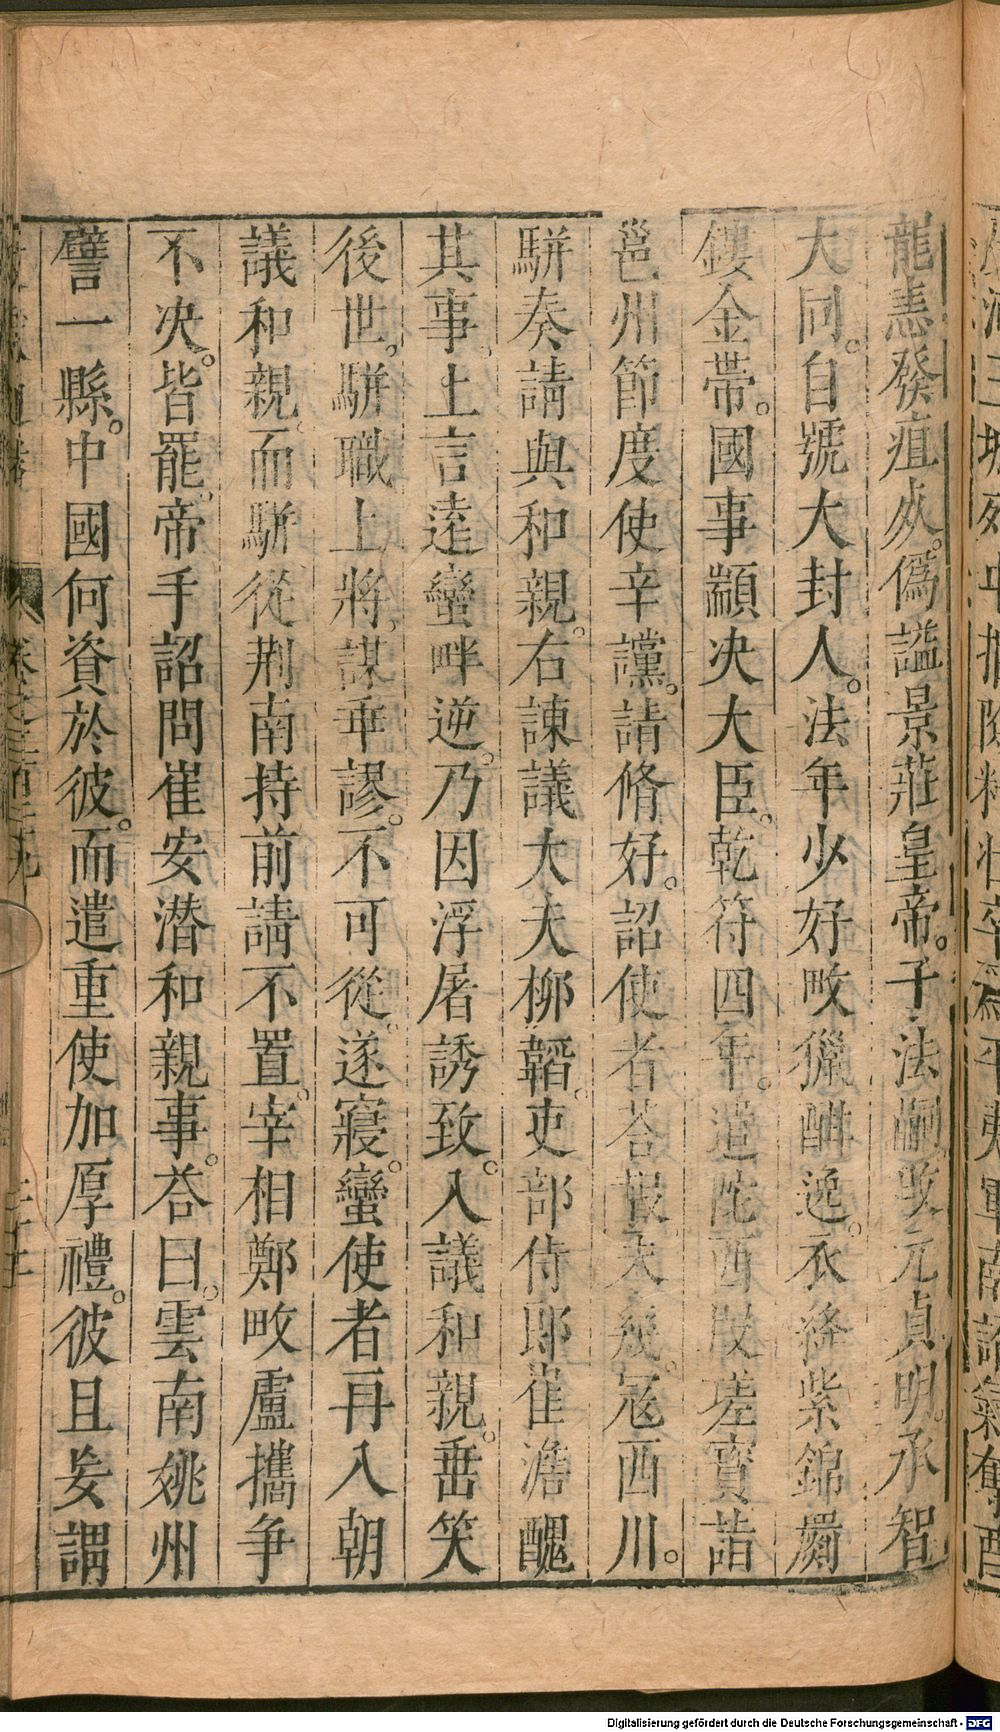 龍恚發疽死。僞謚景莊皇帝。子法嗣改元貞明。承智
大同。自號大封人。法年少好畋獵酣逸。衣絳紫錦罽
鏤金帶。國事顓决大臣。乾符四年。遣陀西段㻇寶詣
邕州節度使辛讜。請脩好。詔使者荅報。未幾。寇西川。
駢奏請與和親。右諫議大夫柳韜。吏部侍郎崔澹醜
其事。上言遠蠻畔逆。乃因浮屠誘致。入議和親。垂笑
後世。駢職上將。謀乖謬。不可從。遂寢。蠻使者再入朝
議和親。而駢從荆南持前請不置。宰相鄭畋盧攜争
不决。皆罷。帝手詔問崔安潜和親事。荅曰。雲南姚州
譬一縣。中國何資於彼。而遣重使加厚禮。彼且妄謂
卷之三百三九
Digitalisierung gefördert durch die Deutsche Forschungsgemeinschaft - DFG